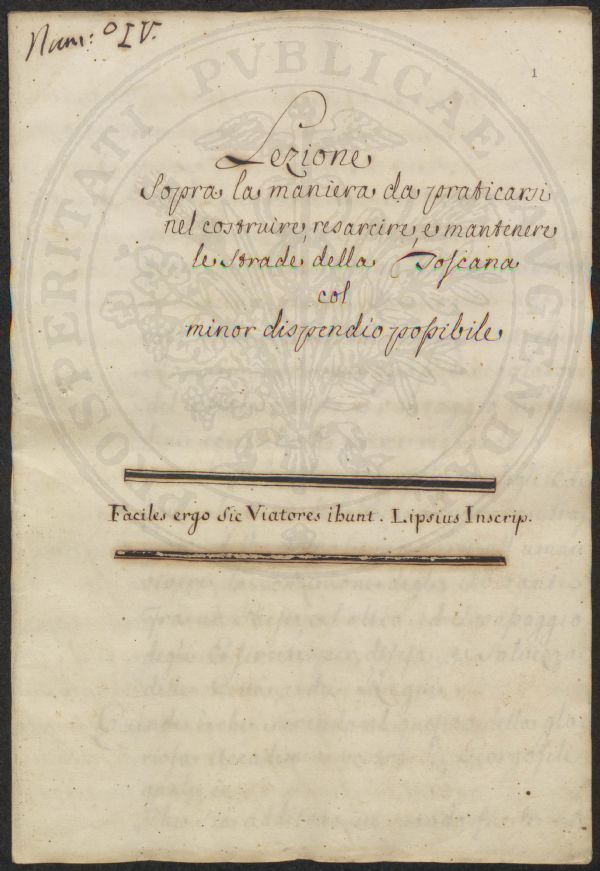 Num:º IV.
1
Lezione
Sopra la maniera da praticarsi
nel costruire, resarcire, e mantenere
le strade della Toscana
col
minor dispendio poſsibile
Faciles ergo Sic Viatores ibunt. Lipsius Inscrip.
PROSPERITATI PVBLICAE AVGENDAE